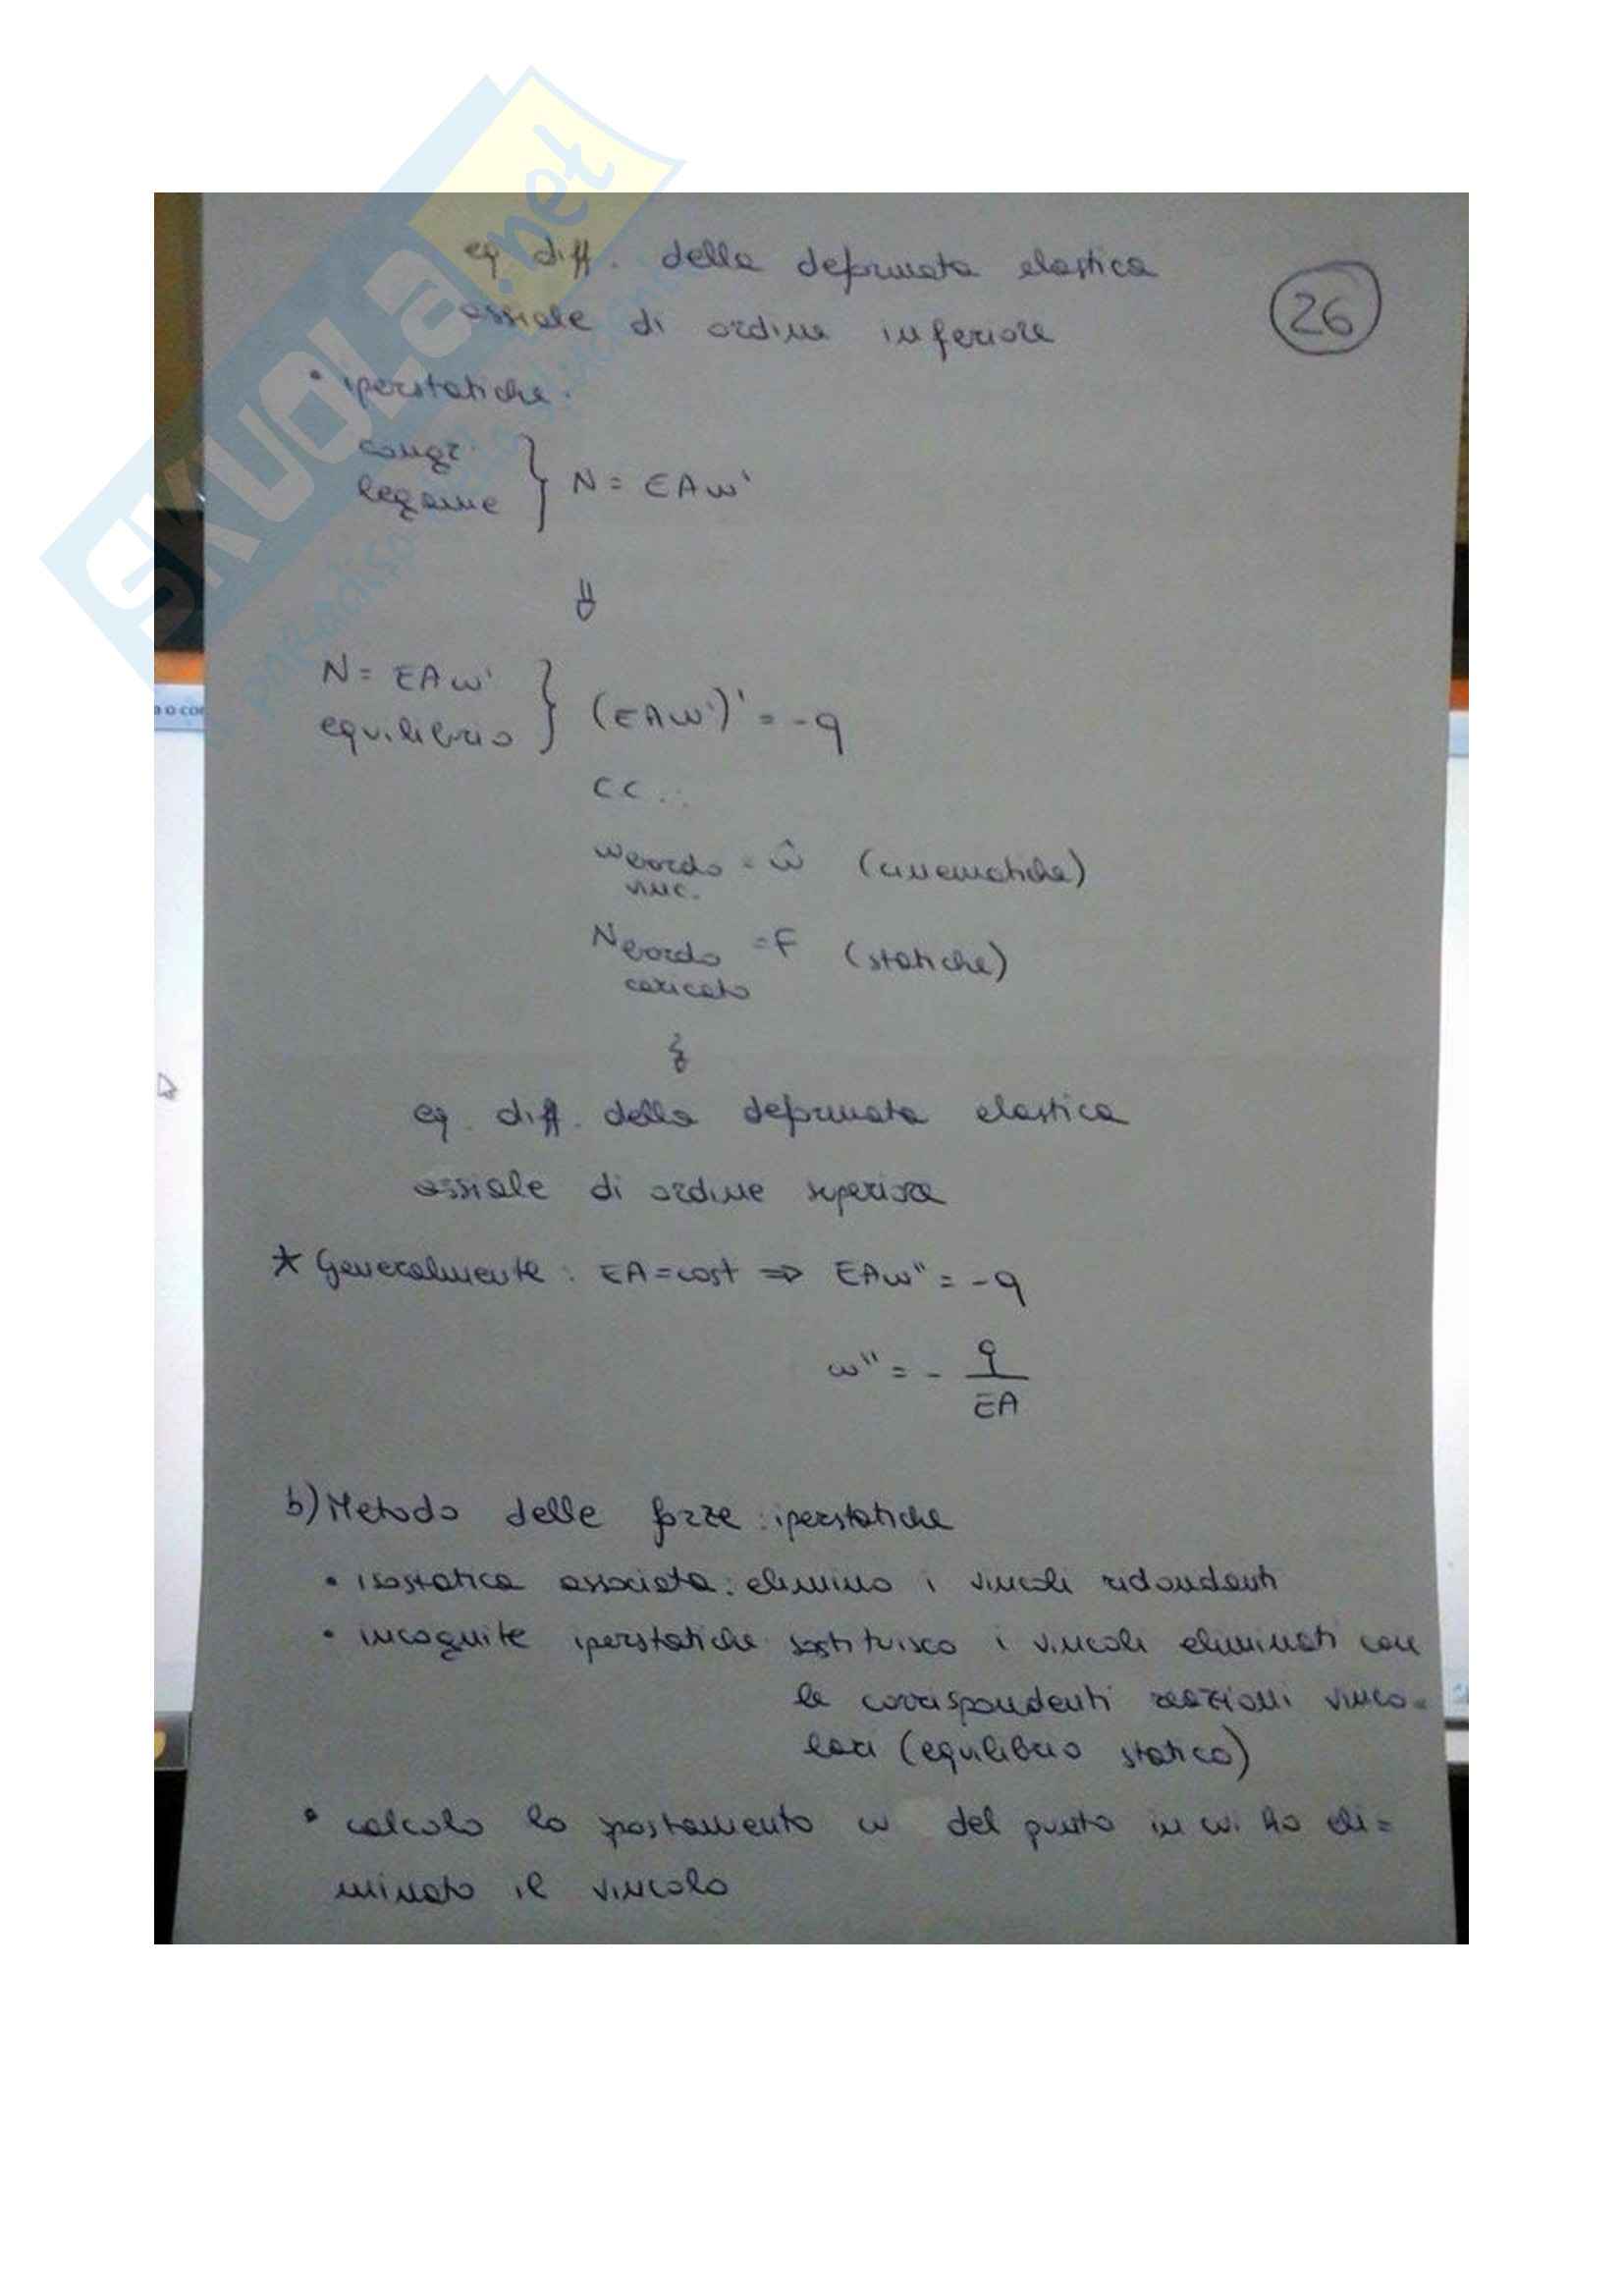 SKUOLA.net
eq diff. della deformata elastica
assiale di ordine inferiore
26
• iperstatiche:
congr.
legame } N = EAw'
⇓
N = EAw'
equilibrio } (EAw')' = -q
CC:
w bordo vinc. = ŵ (cinematiche)
N bordo caricato = F (statiche)
eq. diff. della deformata elastica
assiale di ordine superiore
* Generalmente: EA = cost ⇒ EAw'' = -q
w'' = - q/EA
b) Metodo delle forze: iperstatiche
• isostatica associata: elimino i vincoli ridondanti
• incognite iperstatiche: sostituisco i vincoli eliminati con
le corrispondenti reazioni vinco=
lari (equilibrio statico)
• calcolo lo spostamento w del punto in cui ho eli=
minato il vincolo